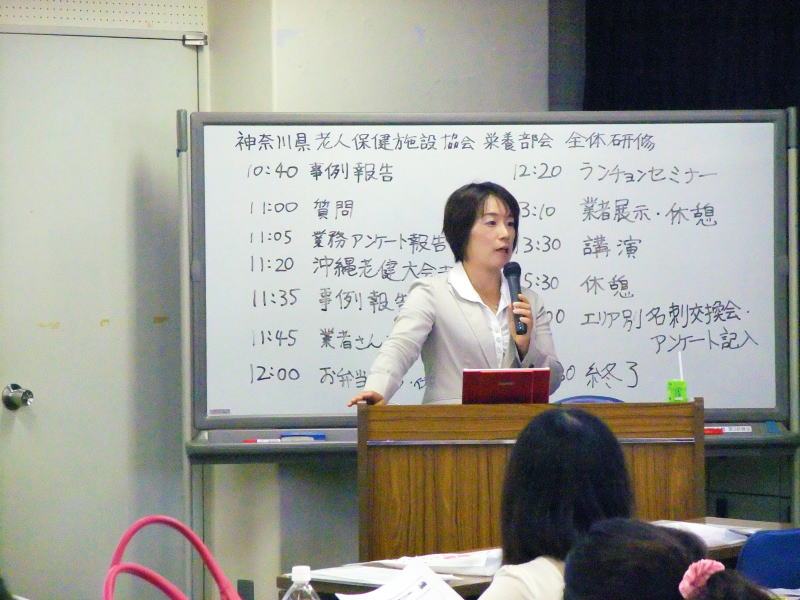 神奈川県老人保健施設協会 栄養部会 全体研修
10:40 事例報告
11:00 質問
11:05 業務アンケート報告
11:20 沖縄老健大会
11:35 事例報告
11:45 業者さん
12:00 お弁当
12:20 ランチョンセミナー
3:10 業者展示・休憩
3:30 講演
5:30 休憩
00 エリア別名刺交換会・
アンケート記入
30 終了